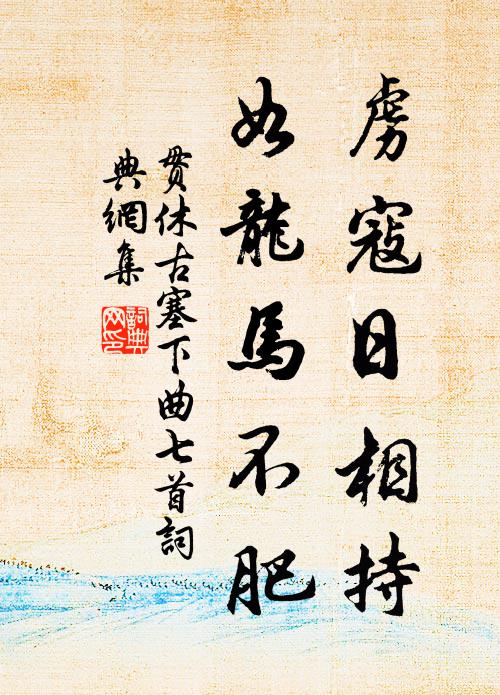 虜寇日相持
如龍馬不肥
貫休古塞下曲七首詞
典網集
詞典
网印